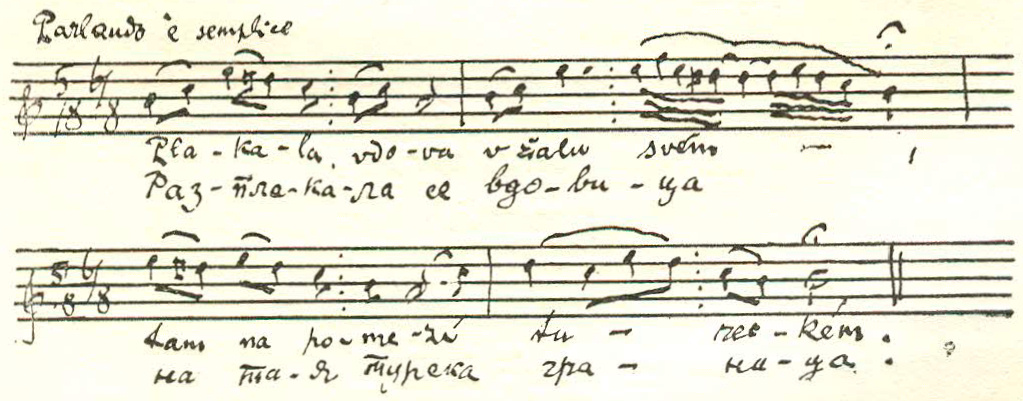 Parlando è semplice
5/8 6/8
Pla-ka-la vdo-va v žalu svém — ,
Раз-пла-ка-ла се вдо-ви-ца
5/8 6/8
tam na po-me-zí tu - rec-kém.
на та-я турска гра - ни-ца.